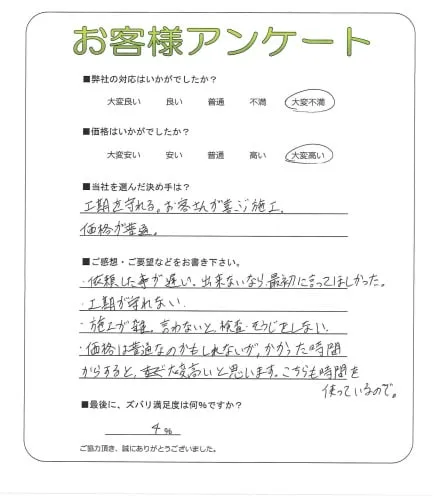 お客様アンケート
■弊社の対応はいかがでしたか?
大変良い 良い 普通 不満 大変不満
■価格はいかがでしたか?
大変安い 安い 普通 高い 大変高い
■当社を選んだ決め手は?
工期を守れる。お客さんが喜ぶ施工、
価格が普通。
■ご感想・ご要望などをお書き下さい。
・依頼した事が遅い、出来ないなら最初に言ってほしかった。
・工期が守れない
・施工が雑、言わないと検査・そうじをしない
・価格は普通なのかもしれないが、かかった時間
からすると、大変高いと思います。こちらも時間を
使っているので。
■最後に、ズバリ満足度は何%ですか?
4%
ご協力頂き、誠にありがとうございました。